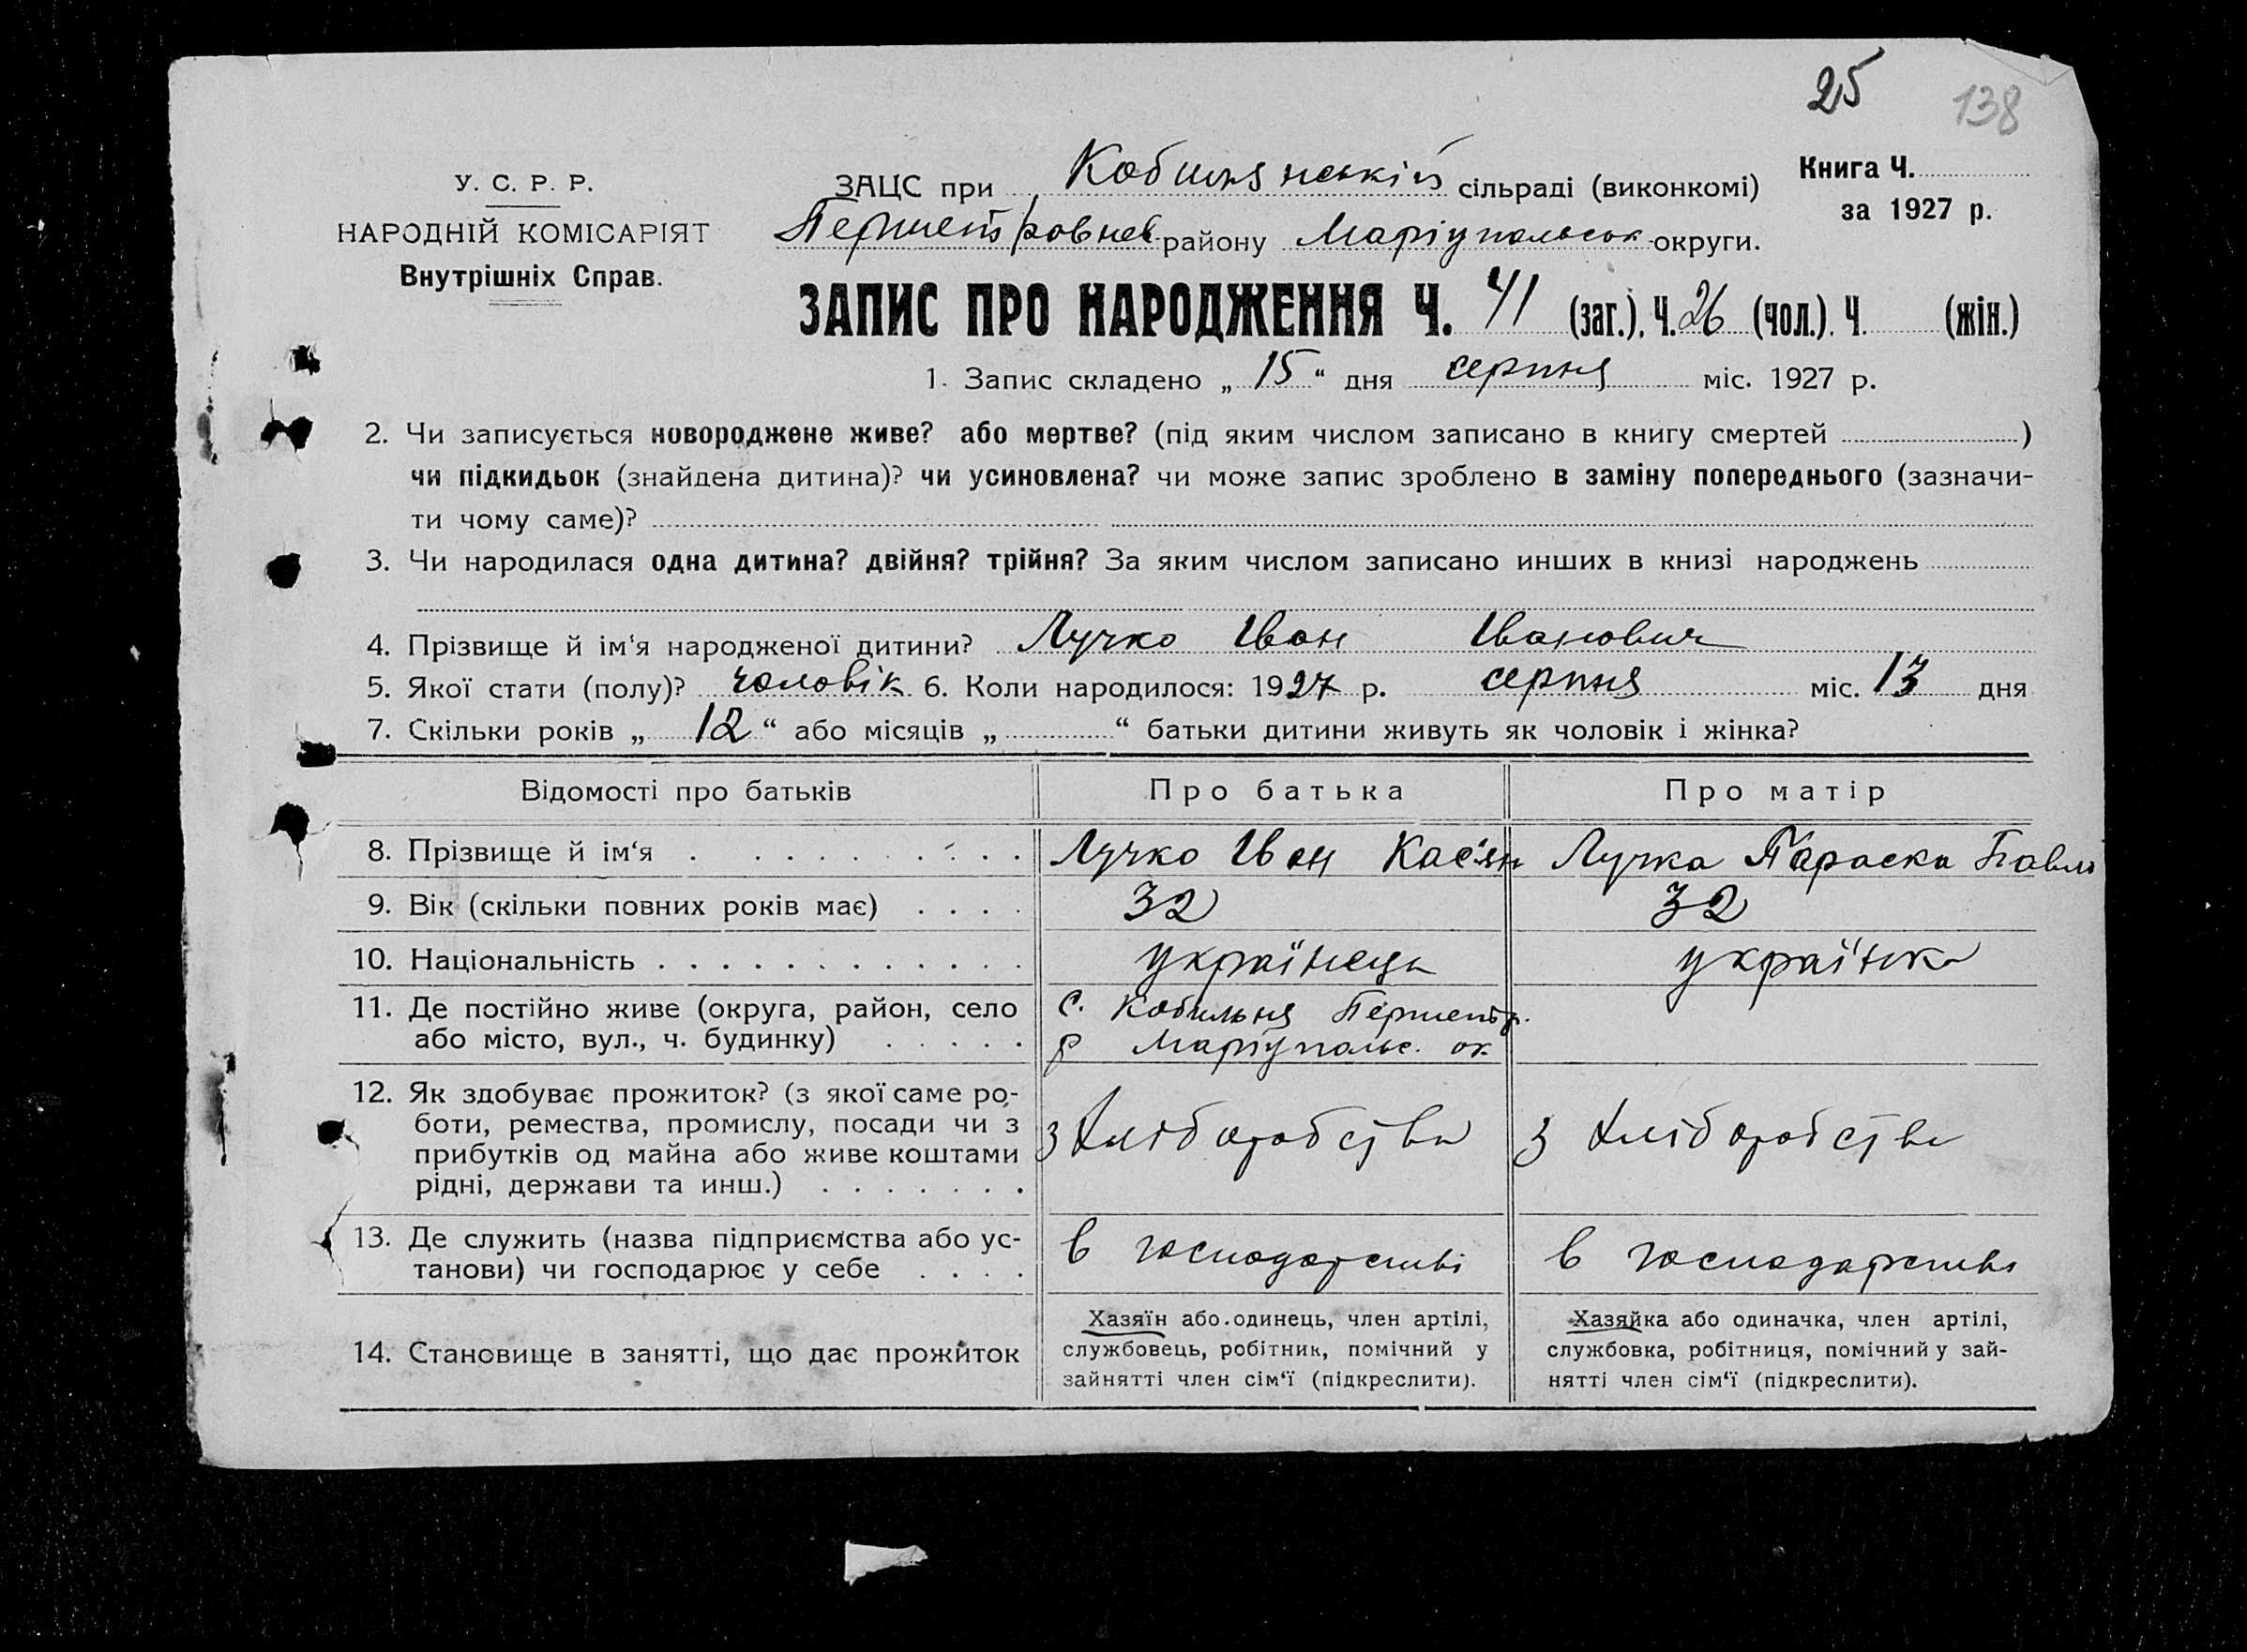 25
138
У. С. Р. Р.
НАРОДНІЙ КОМІСАРІЯТ
Внутрішніх Справ.
ЗАЦС при Кобилянській сільраді (виконкомі)
району Маріупольськ округи.
Книга Ч.
за 1927 р.
ЗАПИС ПРО НАРОДЖЕННЯ Ч. 41 (заг.), Ч. 26 (чол.). Ч. (жін.)
1. Запис складено „ 15 “ дня серпня міс. 1927 р.
2. Чи записується новороджене живе? або мертве? (під яким числом записано в книгу смертей )
чи підкидьок (знайдена дитина)? чи усиновлена? чи може запис зроблено в заміну попереднього (зазначи-
ти чому саме)?
3. Чи народилася одна дитина? двійня? трійня? За яким числом записано инших в книзі народжень
4. Прізвище й ім‘я народженої дитини? Лучко Іван Іванович
5. Якої стати (полу)? чоловік 6. Коли народилося: 1927 р. серпня міс. 13 дня
7. Скільки років „ 12 “ або місяців „ “ батьки дитини живуть як чоловік і жінка?
Відомості про батьків Про батька Про матір
8. Прізвище й ім‘я Лучко Іван Кас'ян Лучка Параска Павл
9. Вік (скільки повних років має) 32 32
10. Національність українець українка
11. Де постійно живе (округа, район, село с. Кобильня Першетр.
або місто, вул., ч. будинку) р Маріупольс. ок.
12. Як здобуває прожиток? (з якої саме ро-
боти, ремества, промислу, посади чи з з хліборобства з хліборобства
прибутків од майна або живе коштами
рідні, держави та инш.)
13. Де служить (назва підприємства або ус- в господарстві в господарстві
танови) чи господарює у себе
14. Становище в занятті, що дає прожиток
Хазяїн або одинець, член артілі,
службовець, робітник, помічний у
зайнятті член сім‘ї (підкреслити).
Хазяйка або одиначка, член артілі,
службовка, робітниця, помічний у зай-
нятті член сім‘ї (підкреслити).